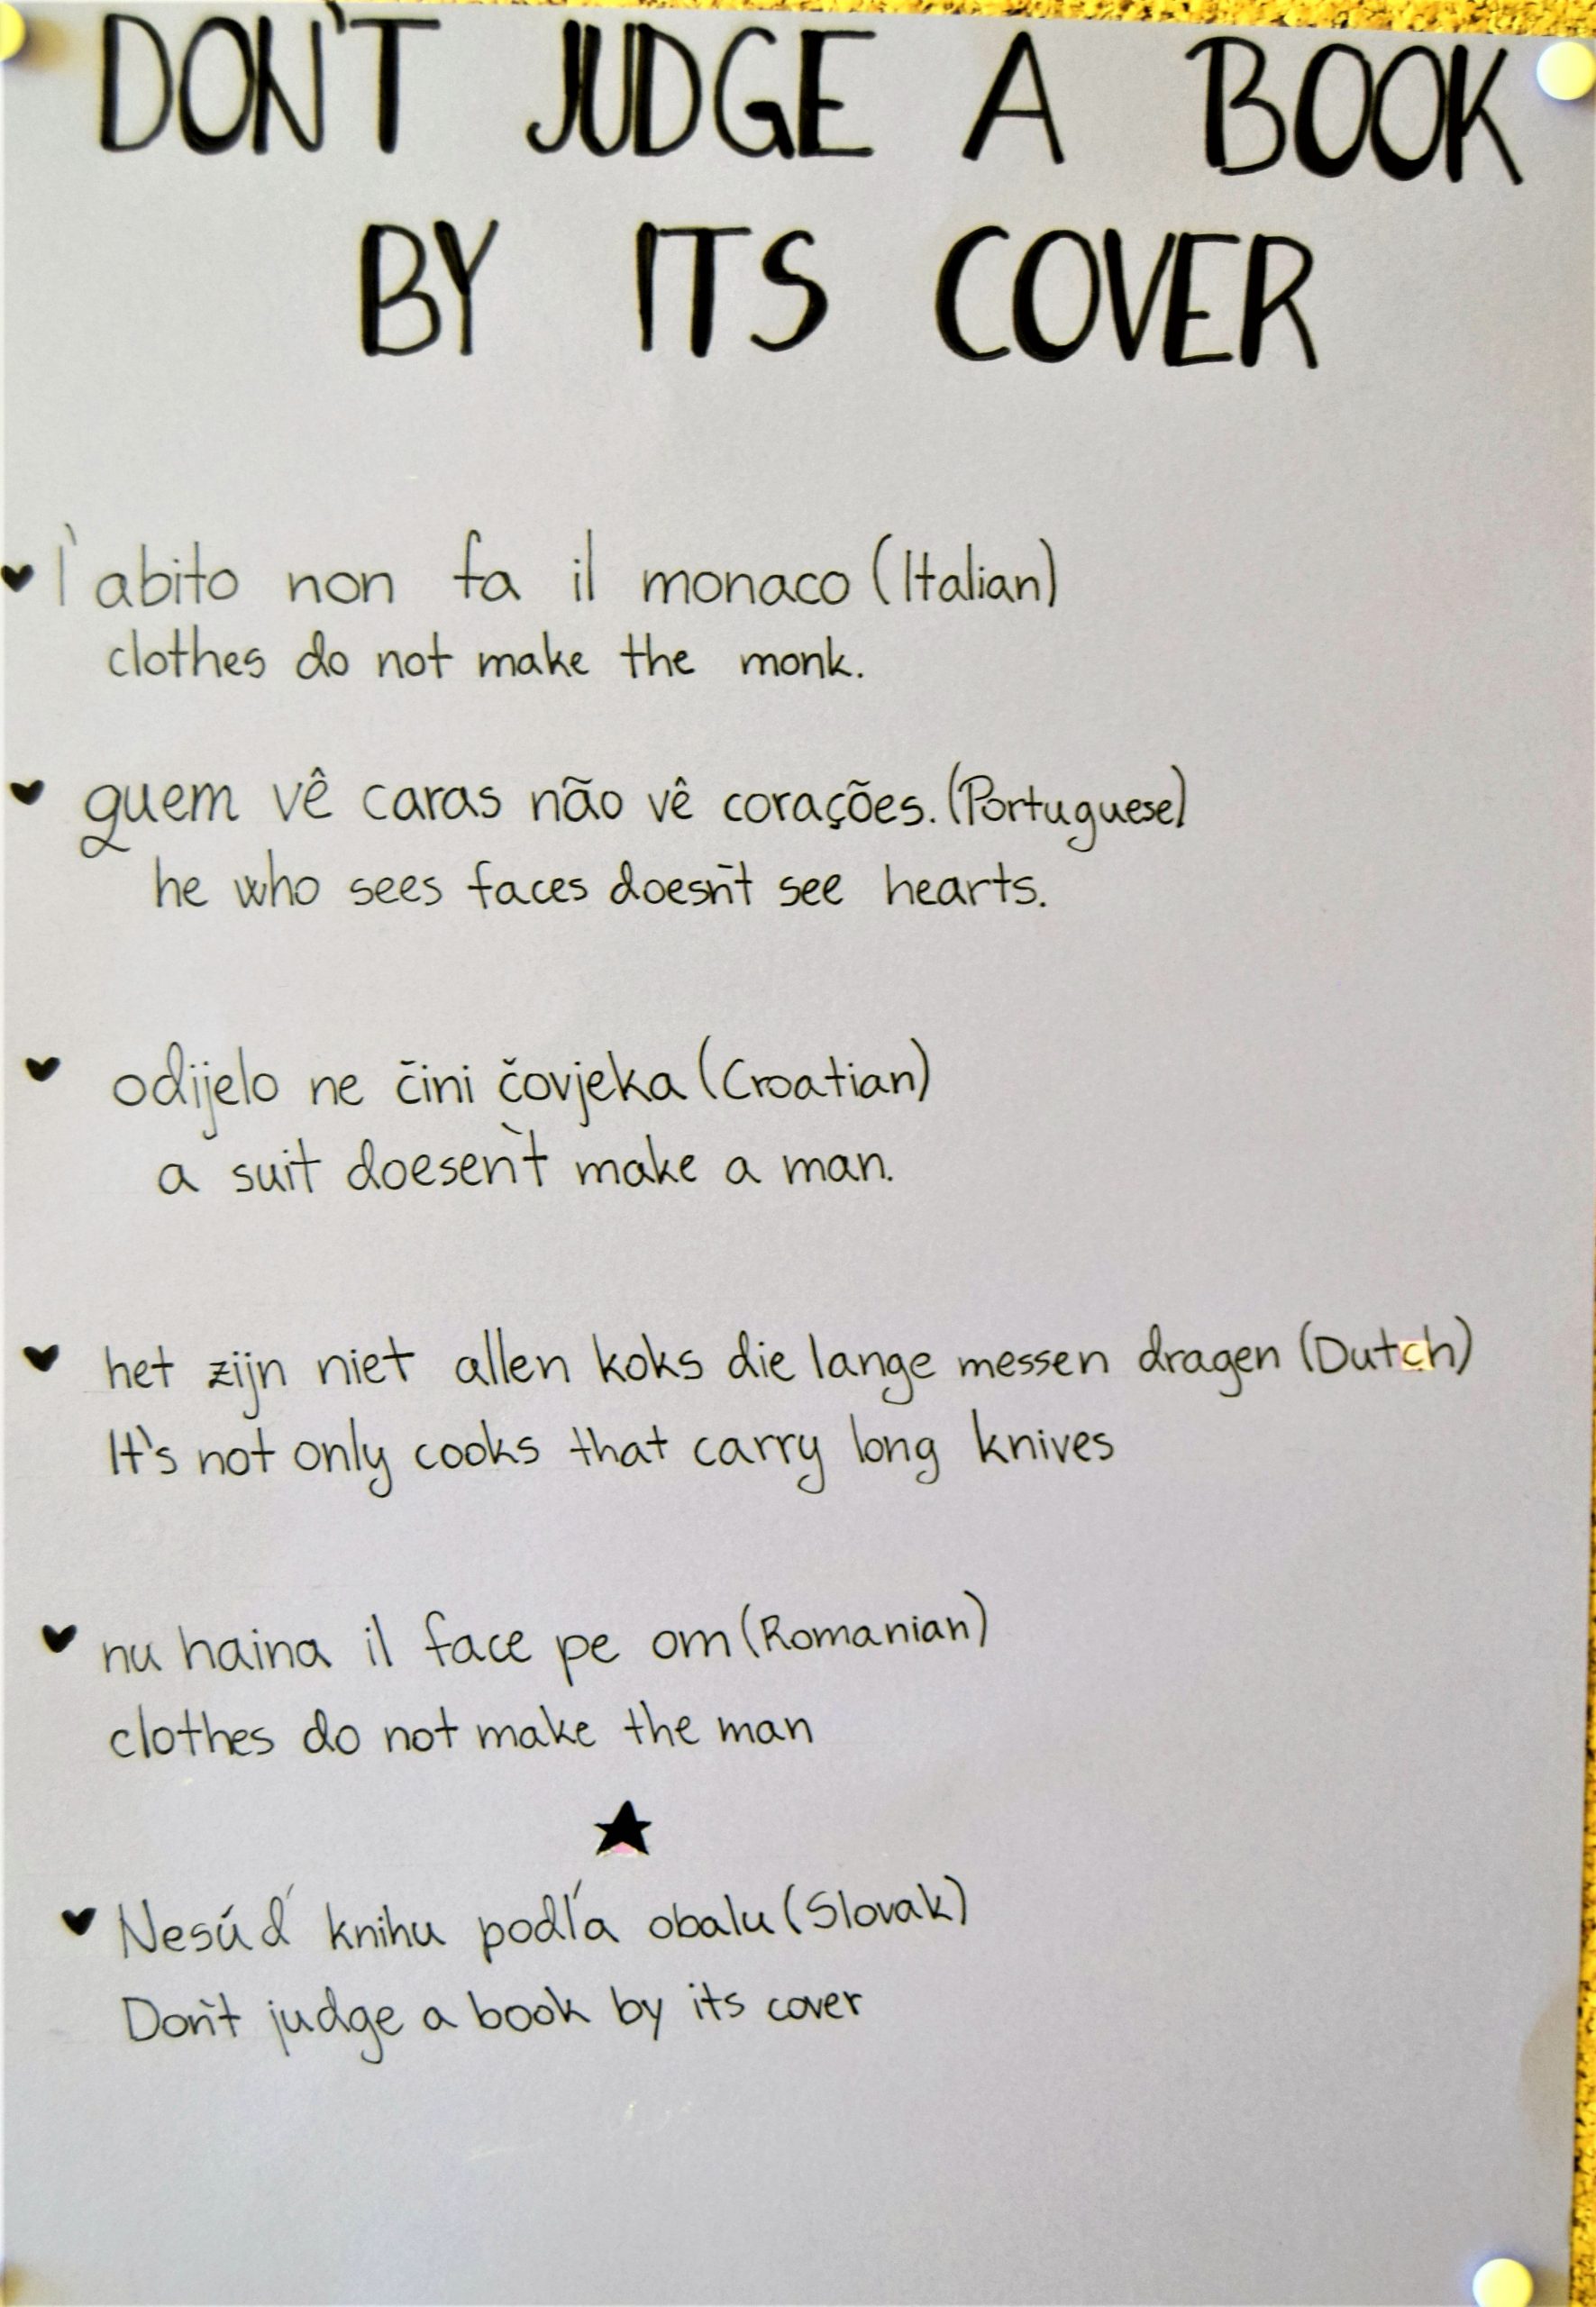 DON'T JUDGE A BOOK
BY ITS COVER
l'abito non fa il monaco (Italian)
clothes do not make the monk.
quem vê caras não vê corações. (Portuguese)
he who sees faces doesn't see hearts.
odijelo ne čini čovjeka (Croatian)
a suit doesen't make a man.
het zijn niet allen koks die lange messen dragen (Dutch)
It's not only cooks that carry long knives
nu haina il face pe om (Romanian)
clothes do not make the man
Nesúď knihu podľa obalu (Slovak)
Don't judge a book by its cover